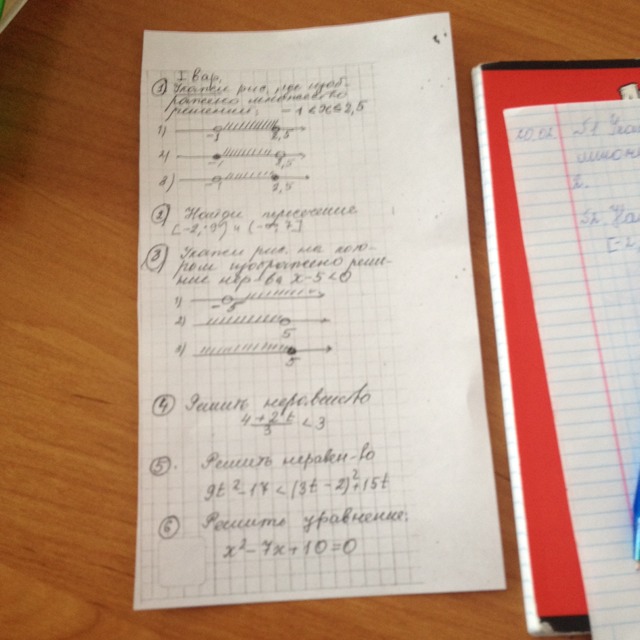 I вар.
① Укажи рис, где изоб-
ражено множество
решений: -1<x≤2,5
1) -1 2,5
2) -1 2,5
3) -1 2,5
② Найди пересечение
③ Укажи рис. на кото-
ром изображено реше-
ние нер-ва x-5<0
1) -5
2) 5
3) 5
④ Решить неравенство
4+2t/3 < 3
⑤. Решить неравен-во
9t²-17<(3t-2)²+15t
⑥ Решить уравнение:
x²-7x+10=0
2.